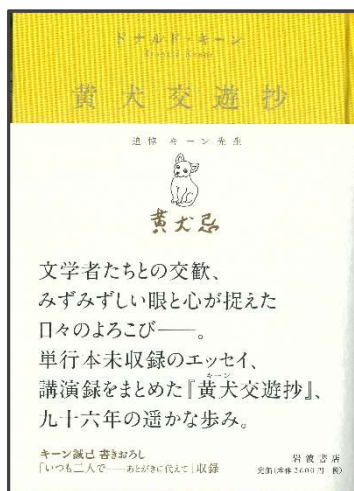 ドナルド・キーン
Donald Keene
黄犬交遊抄
追悼 キーン先生
黄犬忌
文学者たちとの交歓、
みずみずしい眼と心が捉えた
日々のよろこび──。
単行本未収録のエッセイ、
講演録をまとめた『黄犬交遊抄』、
キーン
九十六年の遥かな歩み。
キーン誠己 書きおろし
「いつも二人で──あとがきに代えて」収録
岩波書店
定価(本体2600円+税)